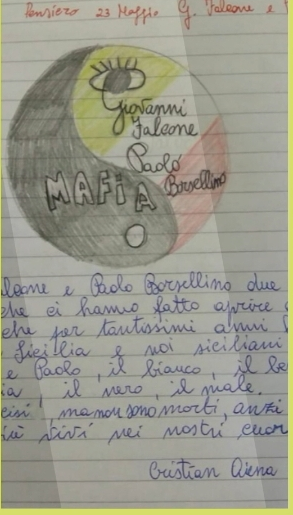 Pensiero 23 Maggio G. Falcone e
Giovanni
Falcone
Paolo
Borsellino
MAFIA
lcone e Paolo Borsellino due
che ci hanno fatto aprire
che per tantissimi anni
Sicilia e noi siciliani
e Paolo, il bianco, il be
ia, il nero, il male.
cisi ma non sono morti, anzi
iù vivi nei nostri cuor
Cristian Aiena